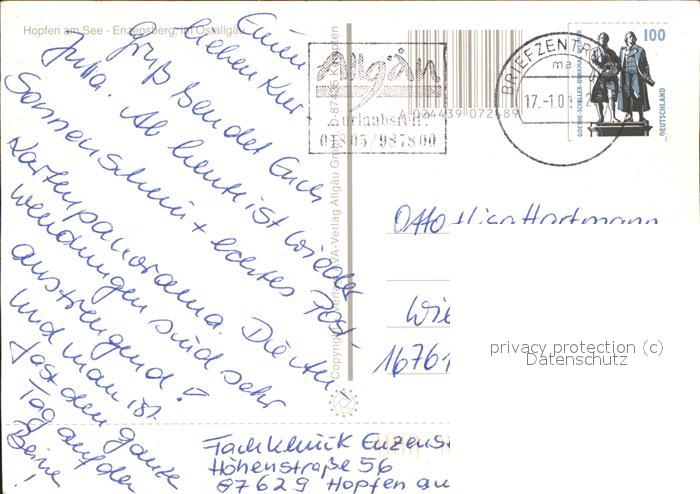 Hopfen am See - Enzensberg im Ostallgäu
Einen
lieben Kur
Gruß sendet Euch
Jutta. Ab heute ist wieder
Sonnenschein + echtes Post-
kartenpanorama. Die An-
wendungen sind sehr
anstrengend
und man ist
fast den ganzen
Tag auf den
Beine
!
Allgäu
Urlaubs
01805/987800
024439 072489
BRIEFZENTR
ma
17.-1.01
100
GOETHE-SCHILLER-DENKMAL
DEUTSCHLAND
Otto + Lisa Hartmann
Wie
16761
privacy protection (c)
Datenschutz
Fachklinik Enzens
Höhenstraße 56
87629 Hopfen am
Copyright Verlag Allgäu